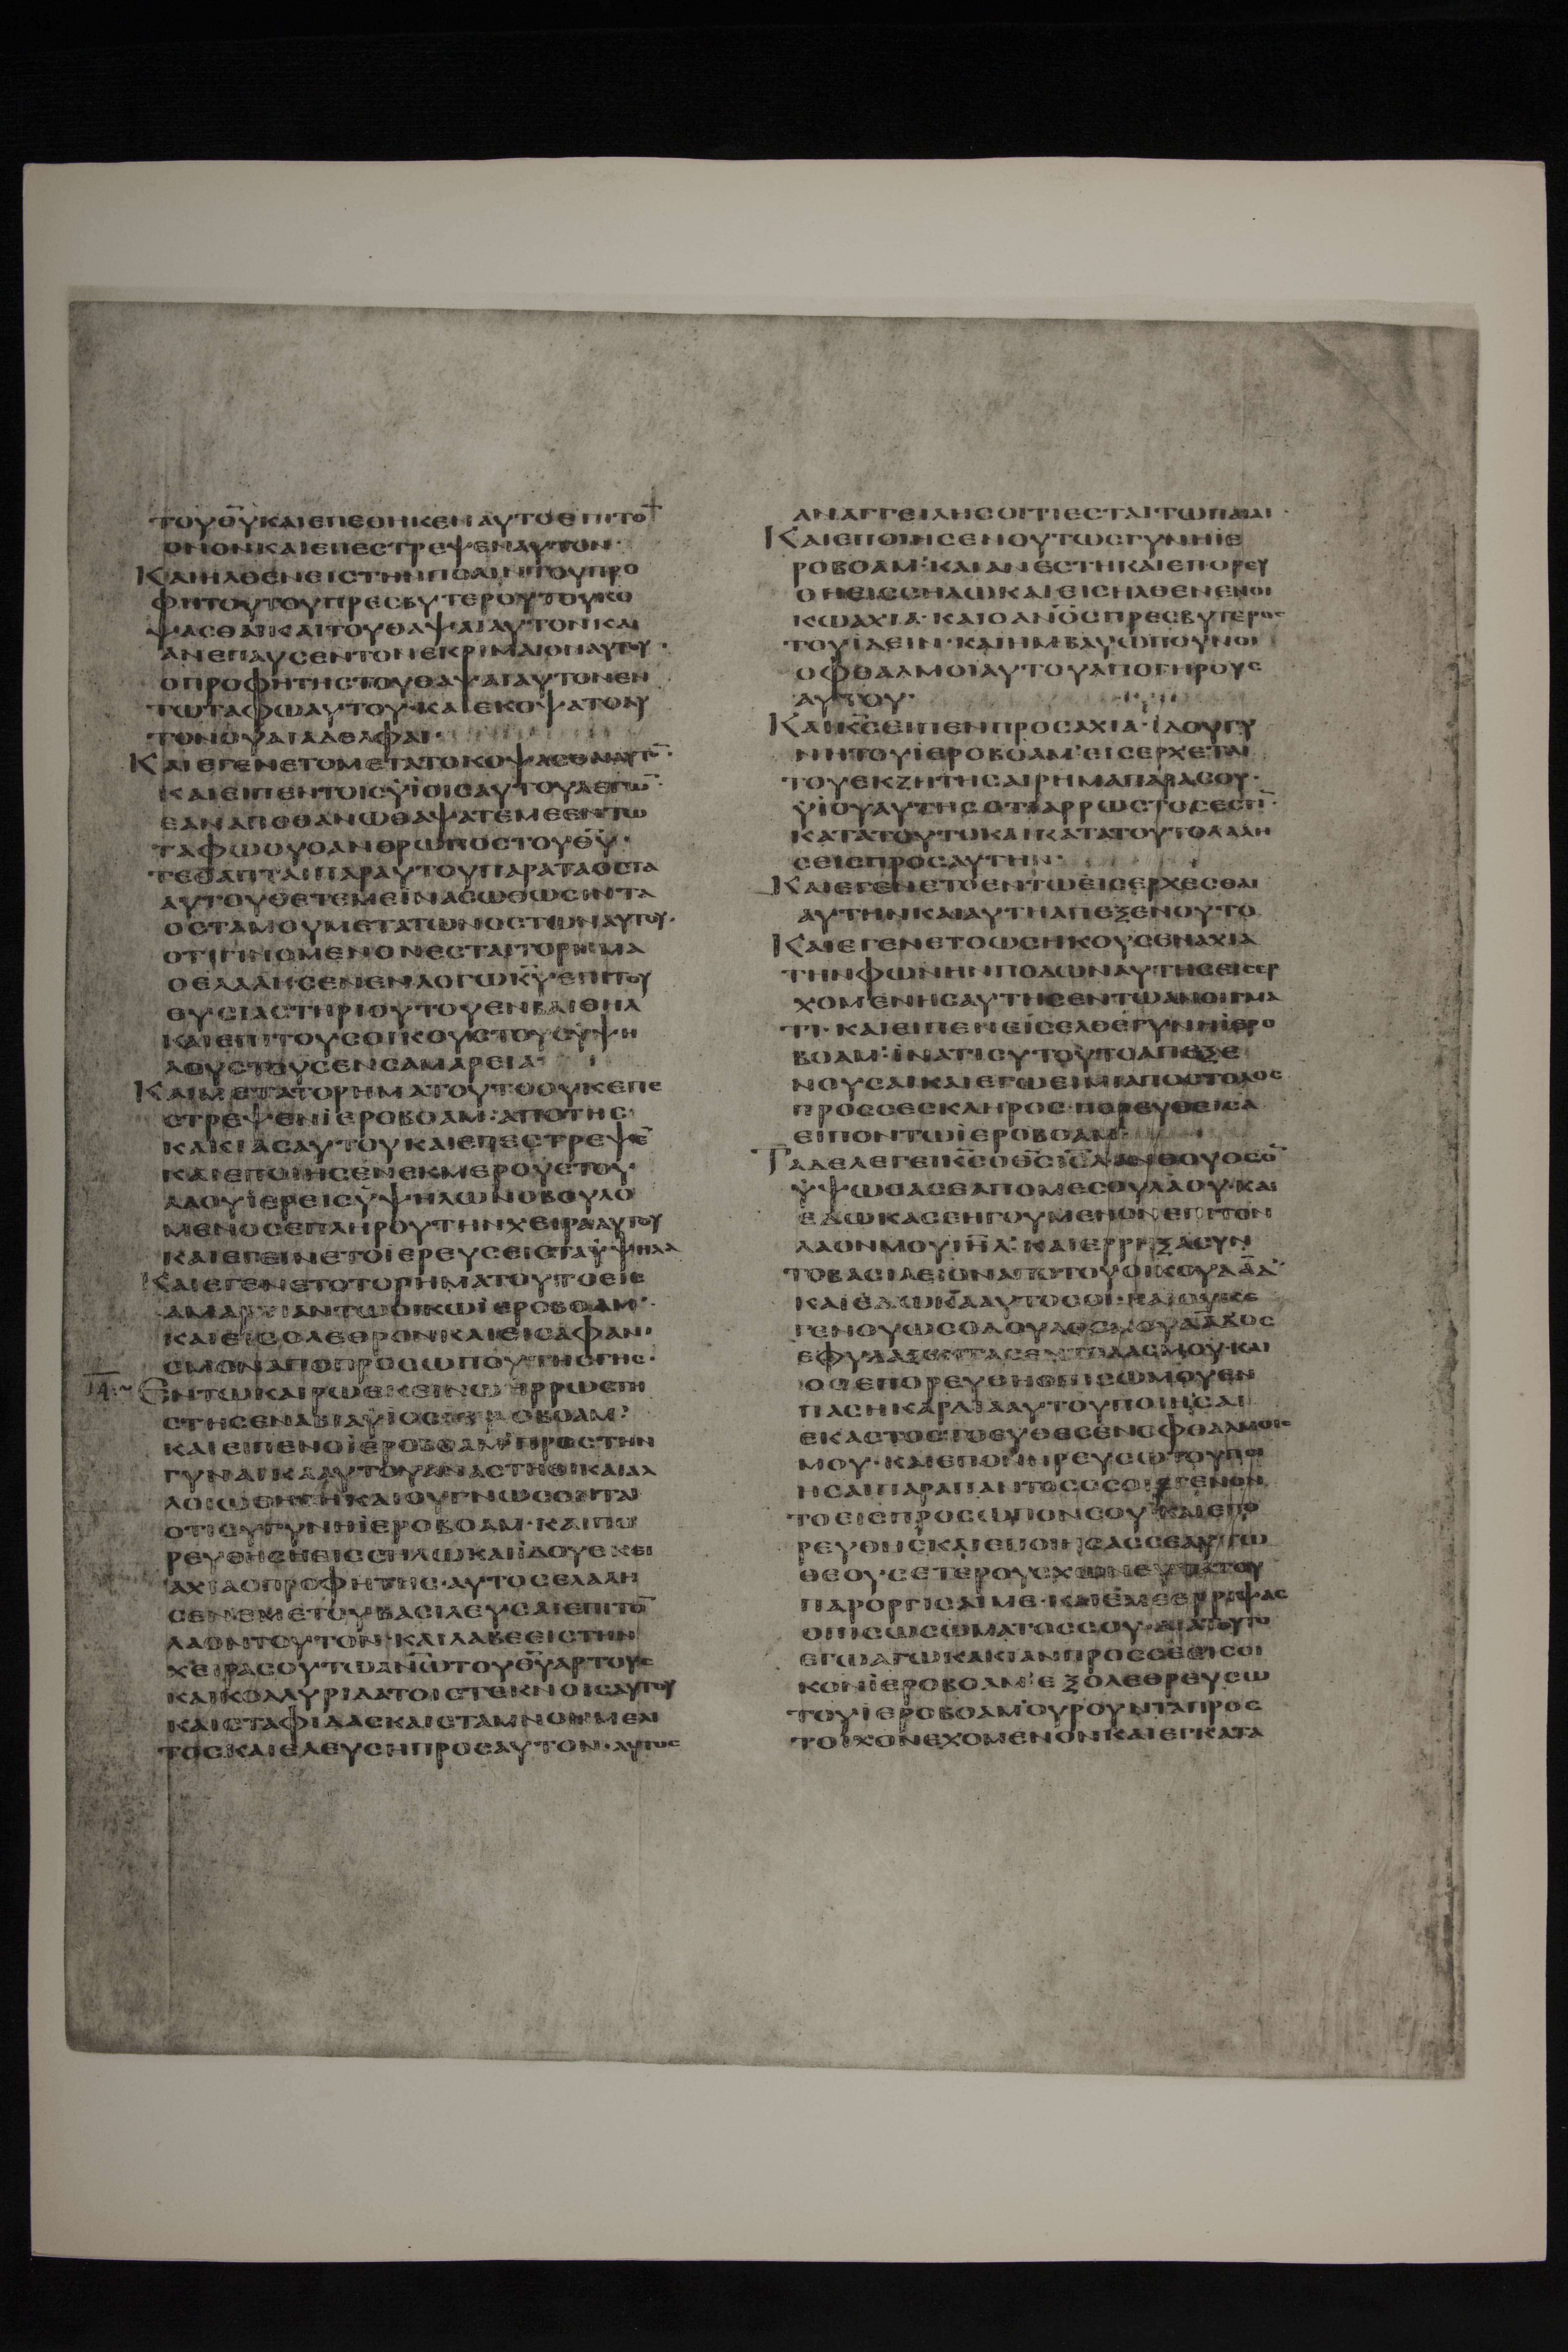 ΤΟΥΘΥΚΑΙΕΠΕΘΗΚΕΝΑΥΤΟΕΠΙΤΟ̄
ΟΝΟΝΚΑΙΕΠΕСΤΡΕΨΕΝΑΥΤΟΝ·
ΚΑΙΗΛΘΕΝΕΙСΤΗΝΠΟΛΙΝΤΟΥΠΡΟ
ΦΗΤΟΥΤΟΥΠΡΕСΒΥΤΕΡΟΥΤΟΥΚΟ
ΨΑСΘΑΙΚΑΙΤΟΥΘΑΨΑΙΑΥΤΟΝΚΑΙ
ΑΝΕΠΑΥСΕΝΤΟΝΕΚΡΙΜΑΙΟΝΑΥΤΟΥ·
ΟΠΡΟΦΗΤΗСΤΟΥΘΑΨΑΙΑΥΤΟΝΕΝ
ΤΩΤΑΦΩΑΥΤΟΥ·ΚΑΙΕΚΟΨΑΤΟΑΥ
ΤΟΝΟΥΑΙΑΔΕΛΦΑΙ·
ΚΑΙΕΓΕΝΕΤΟΜΕΤΑΤΟΚΟΨΑСΘΑΙΑΥΤΟ̄·
ΚΑΙΕΙΠΕΝΤΟΙСΫΪΟΙСΑΥΤΟΥΛΕΓΩ̄·
ΕΑΝΑΠΟΘΑΝΩΘΑΨΑΤΕΜΕΕΝΤΩ
ΤΑΦΩΟΥΟΑΝΘΡΩΠΟСΤΟΥΘΥ·
ΤΕΘΑΠΤΑΙΠΑΡΑΥΤΟΥΠΑΡΑΤΑΟСΤΑ
ΑΥΤΟΥΘΕΤΕΜΕΙΝΑСΩΘΩСΙΝΤΑ
ΟСΤΑΜΟΥΜΕΤΑΤΩΝΟСΤΩΝΑΥΤΟΥ·
ΟΤΙΓΙΝΟΜΕΝΟΝΕСΤΑΙΤΟΡΗΜΑ
ΟΕΛΑΛΗСΕΝΕΝΛΟΓΩΚΥΕΠΙΤΟΥ
ΘΥСΙΑСΤΗΡΙΟΥΤΟΥΕΝΒΑΙΘΗΛ
ΚΑΙΕΠΙΤΟΥСΟΙΚΟΥСΤΟΥСΥΨΗ
ΛΟΥСΤΟΥСΕΝСΑΜΑΡΕΙΑ·
ΚΑΙΜΕΤΑΤΟΡΗΜΑΤΟΥΤΟΟΥΚΕΠΕ
СΤΡΕΨΕΝΪΕΡΟΒΟΑΜ·ΑΠΟΤΗС
ΚΑΚΙΑСΑΥΤΟΥΚΑΙΕΠΕСΤΡΕΨΕ̄
ΚΑΙΕΠΟΙΗСΕΝΕΚΜΕΡΟΥСΤΟΥ
ΛΑΟΥΪΕΡΕΙСΫΨΗΛΩΝΟΒΟΥΛΟ
ΜΕΝΟСΕΠΛΗΡΟΥΤΗΝΧΕΙΡΑΑΥΤΟΥ
ΚΑΙΕΓΕΙΝΕΤΟΪΕΡΕΥСΕΙСΤΑΫΨΗΛΑ
ΚΑΙΕΓΕΝΕΤΟΤΟΡΗΜΑΤΟΥΤΟΕΙС
ΑΜΑΡΤΙΑΝΤΩΟΙΚΩΪΕΡΟΒΟΑΜ·
ΚΑΙΕΙСΟΛΕΘΡΟΝΚΑΙΕΙСΑΦΑΝΙ
СΜΟΝΑΠΟΠΡΟСΩΠΟΥΤΗСΓΗС·
14. ΕΝΤΩΚΑΙΡΩΕΚΕΙΝΩΗΡΡΩСΤΗ
СΤΗСΕΝΑΒΙΑΥΙΟСΙΕΡΟΒΟΑΜ·
ΚΑΙΕΙΠΕΝΟΪΕΡΟΒΟΑΜΠΡΟСΤΗΝ
ΓΥΝΑΙΚΑΑΥΤΟΥΑΝΑСΤΗΘΙΚΑΙΑΛ
ΛΟΙΩΘΗΤΗΚΑΙΟΥΓΝΩСΟΝΤΑΙ
ΟΤΙСΥΓΥΝΗΪΕΡΟΒΟΑΜ·ΚΑΙΠΟ
ΡΕΥΘΗСΗΕΙССΗΛΩΚΑΙΪΔΟΥΕΚΕΙ
ΑΧΙΑΟΠΡΟΦΗΤΗС·ΑΥΤΟСΕΛΑΛΗ
СΕΝΕΜΕΤΟΥΒΑСΙΛΕΥСΑΙΕΠΙΤΟ̄
ΛΑΟΝΤΟΥΤΟΝ·ΚΑΙΛΑΒΕΕΙСΤΗΝ
ΧΕΙΡΑСΟΥΤΩΑΝΩΤΟΥΘΥΑΡΤΟΥС
ΚΑΙΚΟΛΛΥΡΙΔΑΤΟΙСΤΕΚΝΟΙСΑΥΤΟΥ
ΚΑΙСΤΑΦΙΔΑСΚΑΙСΤΑΜΝΟΝΜΕΛΙ
ΤΟСΚΑΙΕΛΕΥСΗΠΡΟСΑΥΤΟΝ·ΑΥΤΟС
ΑΝΑΓΓΕΙΛΗСΟΙΤΙΕСΤΑΙΤΩΠΑΙΔΙ·
ΚΑΙΕΠΟΙΗСΕΝΟΥΤΩСΓΥΝΗΪΕ
ΡΟΒΟΑΜ·ΚΑΙΑΝΕСΤΗΚΑΙΕΠΟΡΕΥ
ΘΗΕΙССΗΛΩΚΑΙΕΙСΗΛΘΕΝΕΝΟΙ
ΚΩΑΧΙΑ·ΚΑΙΟΑΝΟСΠΡΕСΒΥΤΕΡΟС
ΤΟΥΪΔΕΙΝ·ΚΑΙΗΜΒΛΥΩΠΟΥΝΟΙ
ΟΦΘΑΛΜΟΙΑΥΤΟΥΑΠΟΓΗΡΟΥС
ΑΥΤΟΥ·
ΚΑΙΚСΕΙΠΕΝΠΡΟСΑΧΙΑ·ΪΔΟΥΓΥ
ΝΗΤΟΥΪΕΡΟΒΟΑΜΕΙСΕΡΧΕΤΑΙ
ΤΟΥΕΚΖΗΤΗСΑΙΡΗΜΑΠΑΡΑСΟΥ·
ΫΪΟΥΑΥΤΗСΟΤΙΑΡΡΩСΤΟСΕСΤῙ
ΚΑΤΑΤΟΥΤΟΚΑΙΚΑΤΑΤΟΥΤΟΛΑΛΗ
СΕΙСΠΡΟСΑΥΤΗΝ·
ΚΑΙΕΓΕΝΕΤΟΕΝΤΩΕΙСΕΡΧΕСΘΑΙ
ΑΥΤΗΝΚΑΙΑΥΤΗΑΠΕΞΕΝΟΥΤΟ
ΚΑΙΕΓΕΝΕΤΟΩСΗΚΟΥСΕΝΑΧΙΑ
ΤΗΝΦΩΝΗΝΠΟΔΩΝΑΥΤΗСΕΙСΕΡ
ΧΟΜΕΝΗСΑΥΤΗСΕΝΤΩΑΝΟΙΓΜΑ
ΤΙ·ΚΑΙΕΙΠΕΝΕΙСΕΛΘΕΓΥΝΗΪΕΡΟ
ΒΟΑΜ·ΪΝΑΤΙСΥΤΟΥΤΟΑΠΕΞΕ
ΝΟΥСΑΙΚΑΙΕΓΩΕΙΜΙΑΠΟСΤΟΛΟС
ΠΡΟССΕСΚΛΗΡΟС·ΠΟΡΕΥΘΕΙСΑ
ΕΙΠΟΝΤΩΪΕΡΟΒΟΑΜ·
ΤΑΔΕΛΕΓΕΙΚСΟΘСΙΗΛΑΝΘΟΥΟСΟ̄
ΫΨΩСΑСΕΑΠΟΜΕСΟΥΛΑΟΥ·ΚΑΙ
ΕΔΩΚΑСΕΗΓΟΥΜΕΝΟΝΕΠΙΤΟΝ
ΛΑΟΝΜΟΥΙΗΛ·ΚΑΙΕΡΡΗΞΑСΥΝ
ΤΟΒΑСΙΛΕΙΟΝΑΠΟΤΟΥΟΙΚΟΥΔΑΔ
ΚΑΙΕΔΩΚΑΑΥΤΟСΟΙ·ΚΑΙΟΥΚΕ
ΓΕΝΟΥΩСΟΔΟΥΛΟСΜΟΥΔΑΔΟС
ΕΦΥΛΑΞΕΝΤΑСΕΝΤΟΛΑСΜΟΥ·ΚΑΙ
ΟСΕΠΟΡΕΥΘΗΟΠΙСΩΜΟΥΕΝ
ΠΑСΗΚΑΡΔΙΑΑΥΤΟΥΠΟΙΗСΑΙ
ΕΚΑСΤΟСΤΟΕΥΘΕСΕΝΟΦΘΑΛΜΟΙС
ΜΟΥ·ΚΑΙΕΠΟΝΗΡΕΥСΩΤΟΥΠΟΙ
ΗСΑΙΠΑΡΑΠΑΝΤΟСΟСΟΙΕΓΕΝΟΝ
ΤΟΕΙСΠΡΟСΩΠΟΝСΟΥ·ΚΑΙΕΠΟ
ΡΕΥΘΗСΚΑΙΕΠΟΙΗСΑССΕΑΥΤΩ
ΘΕΟΥСΕΤΕΡΟΥСΧΩΝΕΥΤΑΤΟΥ
ΠΑΡΟΡΓΙСΑΙΜΕ·ΚΑΙΕΜΕΕΡΡΙΨΑС
ΟΠΙСΩСΩΜΑΤΟССΟΥ·ΔΙΑΤΟΥΤΟ
ΕΓΩΑΓΩΚΑΚΙΑΝΠΡΟССΕΕΙСΟΙ
ΚΟΝΪΕΡΟΒΟΑΜ·ΕΞΟΛΕΘΡΕΥСΩ
ΤΟΥΪΕΡΟΒΟΑΜΟΥΡΟΥΝΤΑΠΡΟС
ΤΟΙΧΟΝΕΧΟΜΕΝΟΝΚΑΙΕΓΚΑΤΑ